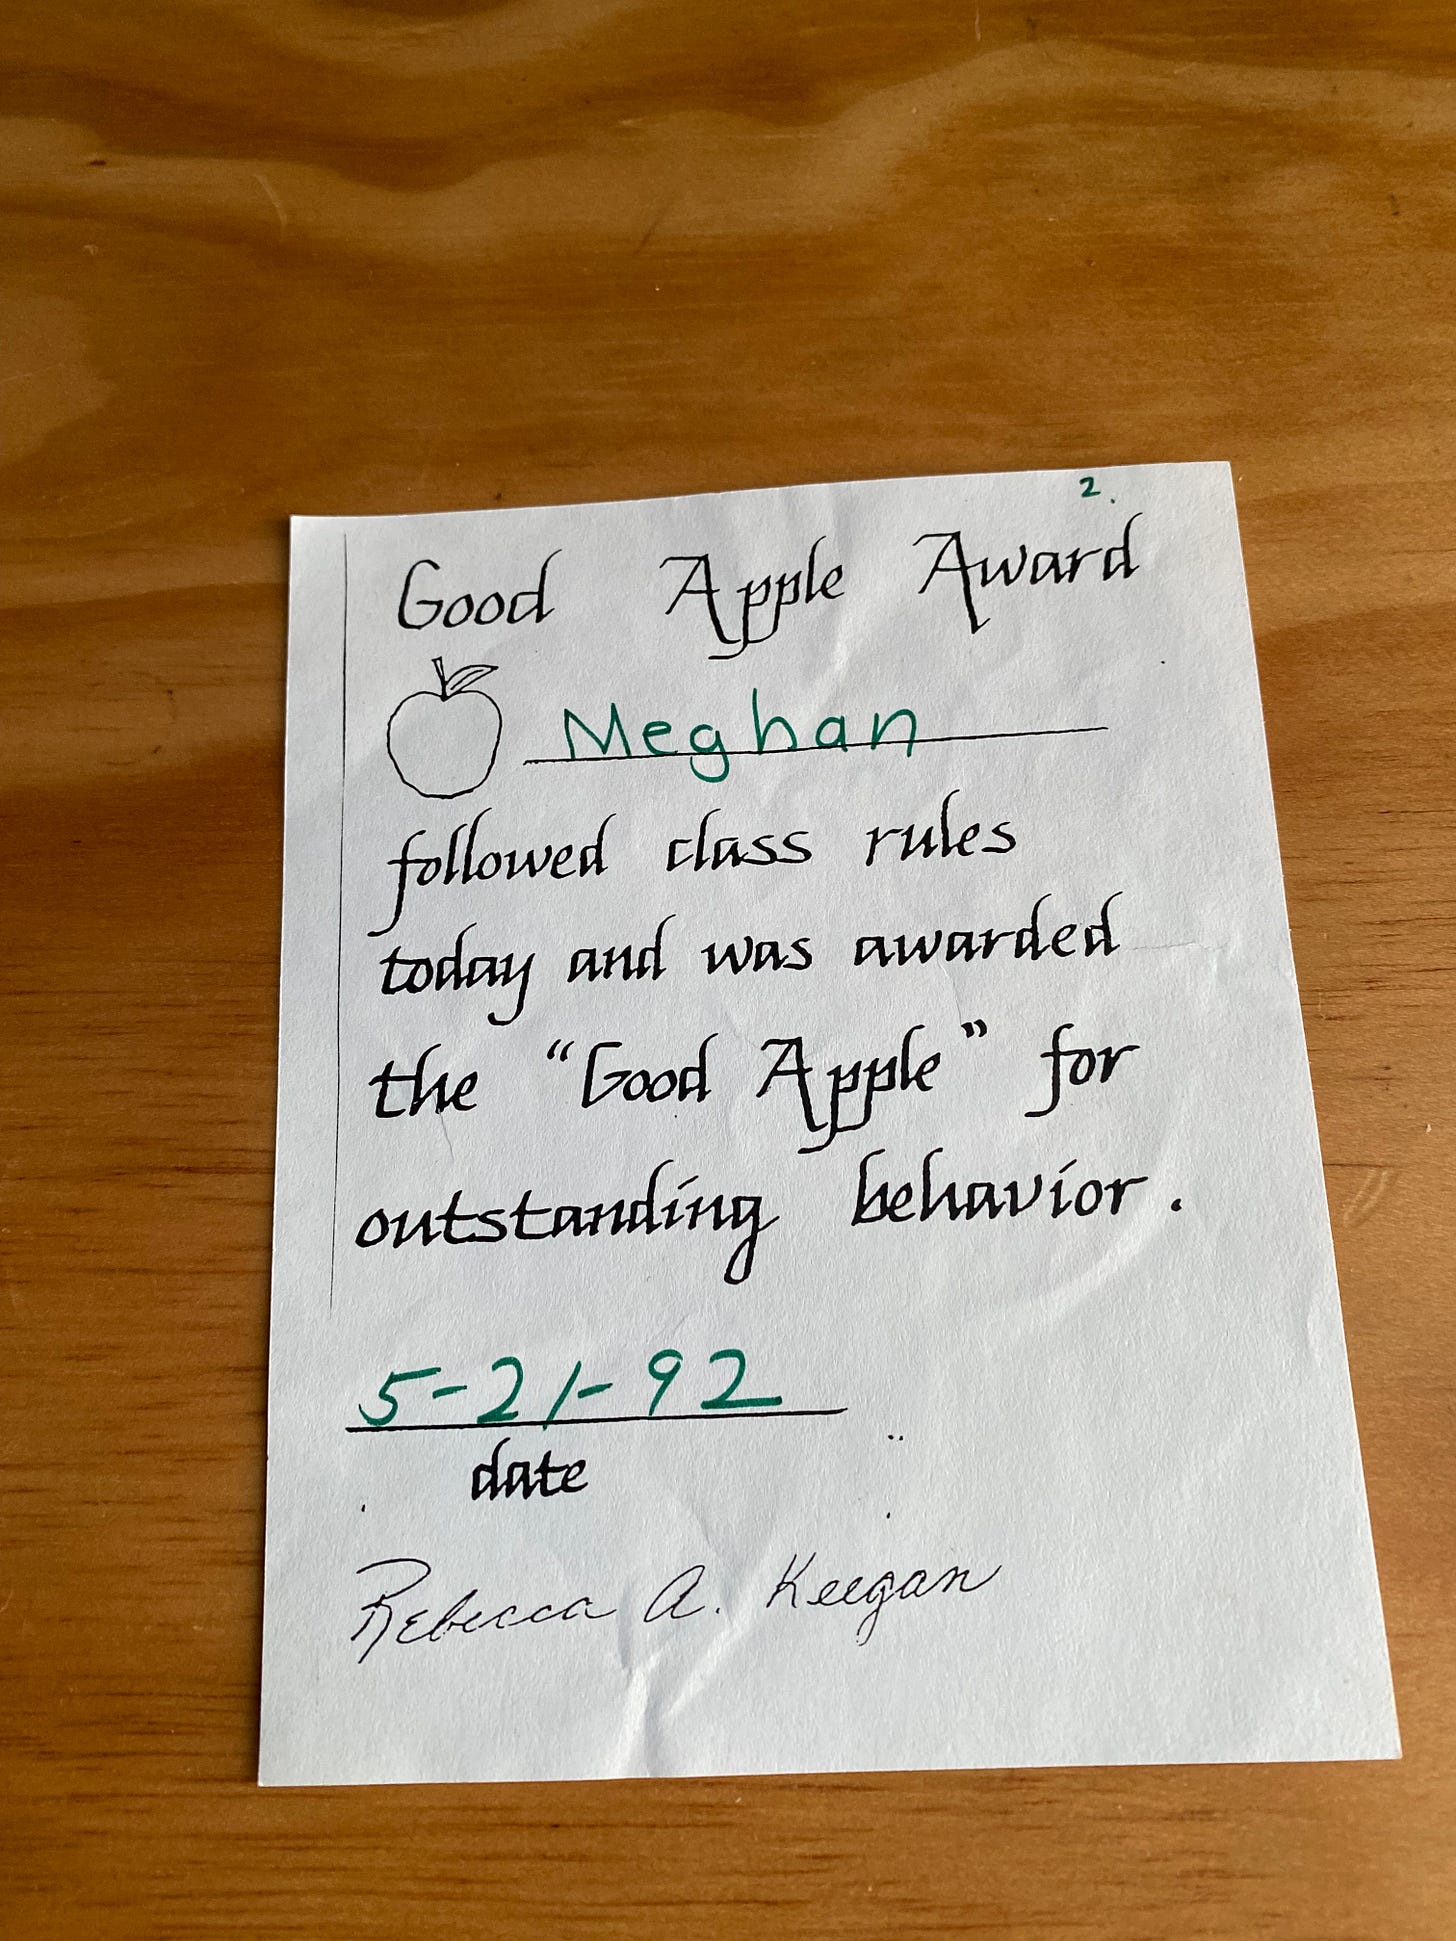 2.
Good Apple Award
Meghan
followed class rules
today and was awarded
the “Good Apple” for
outstanding behavior.
5-21-92
date
Rebecca A. Keegan